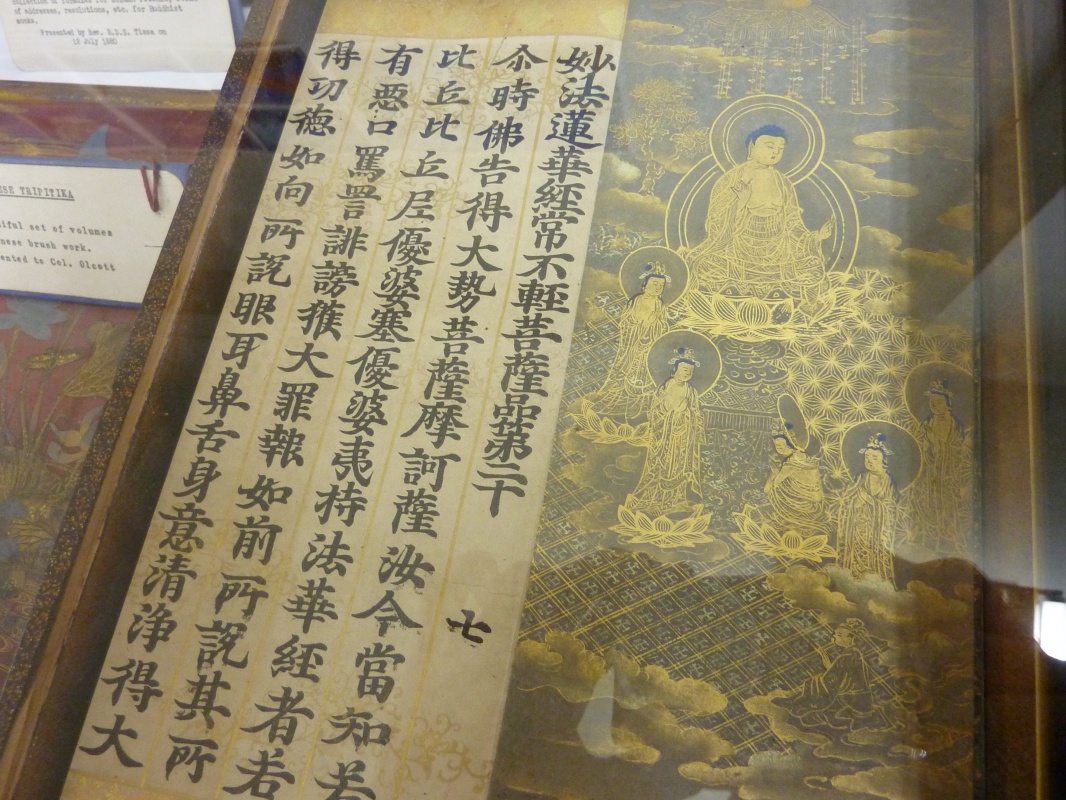 妙法蓮華経常不軽菩薩品第二十
七
尒時佛告得大勢菩薩摩訶薩汝今當知若
比丘比丘尼優婆塞優婆夷持法華経者若
有悪口罵詈誹謗獲大罪報如前所説其所
得功德如向所説眼耳鼻舌身意清浄得大
of addresses, resolutions, etc. for Buddhist
monks.
Presented by Rev. Tissa on
July 1880
ESE TRIPITIKA
iful set of volumes
nese brush work.
ented to Col. Olcott